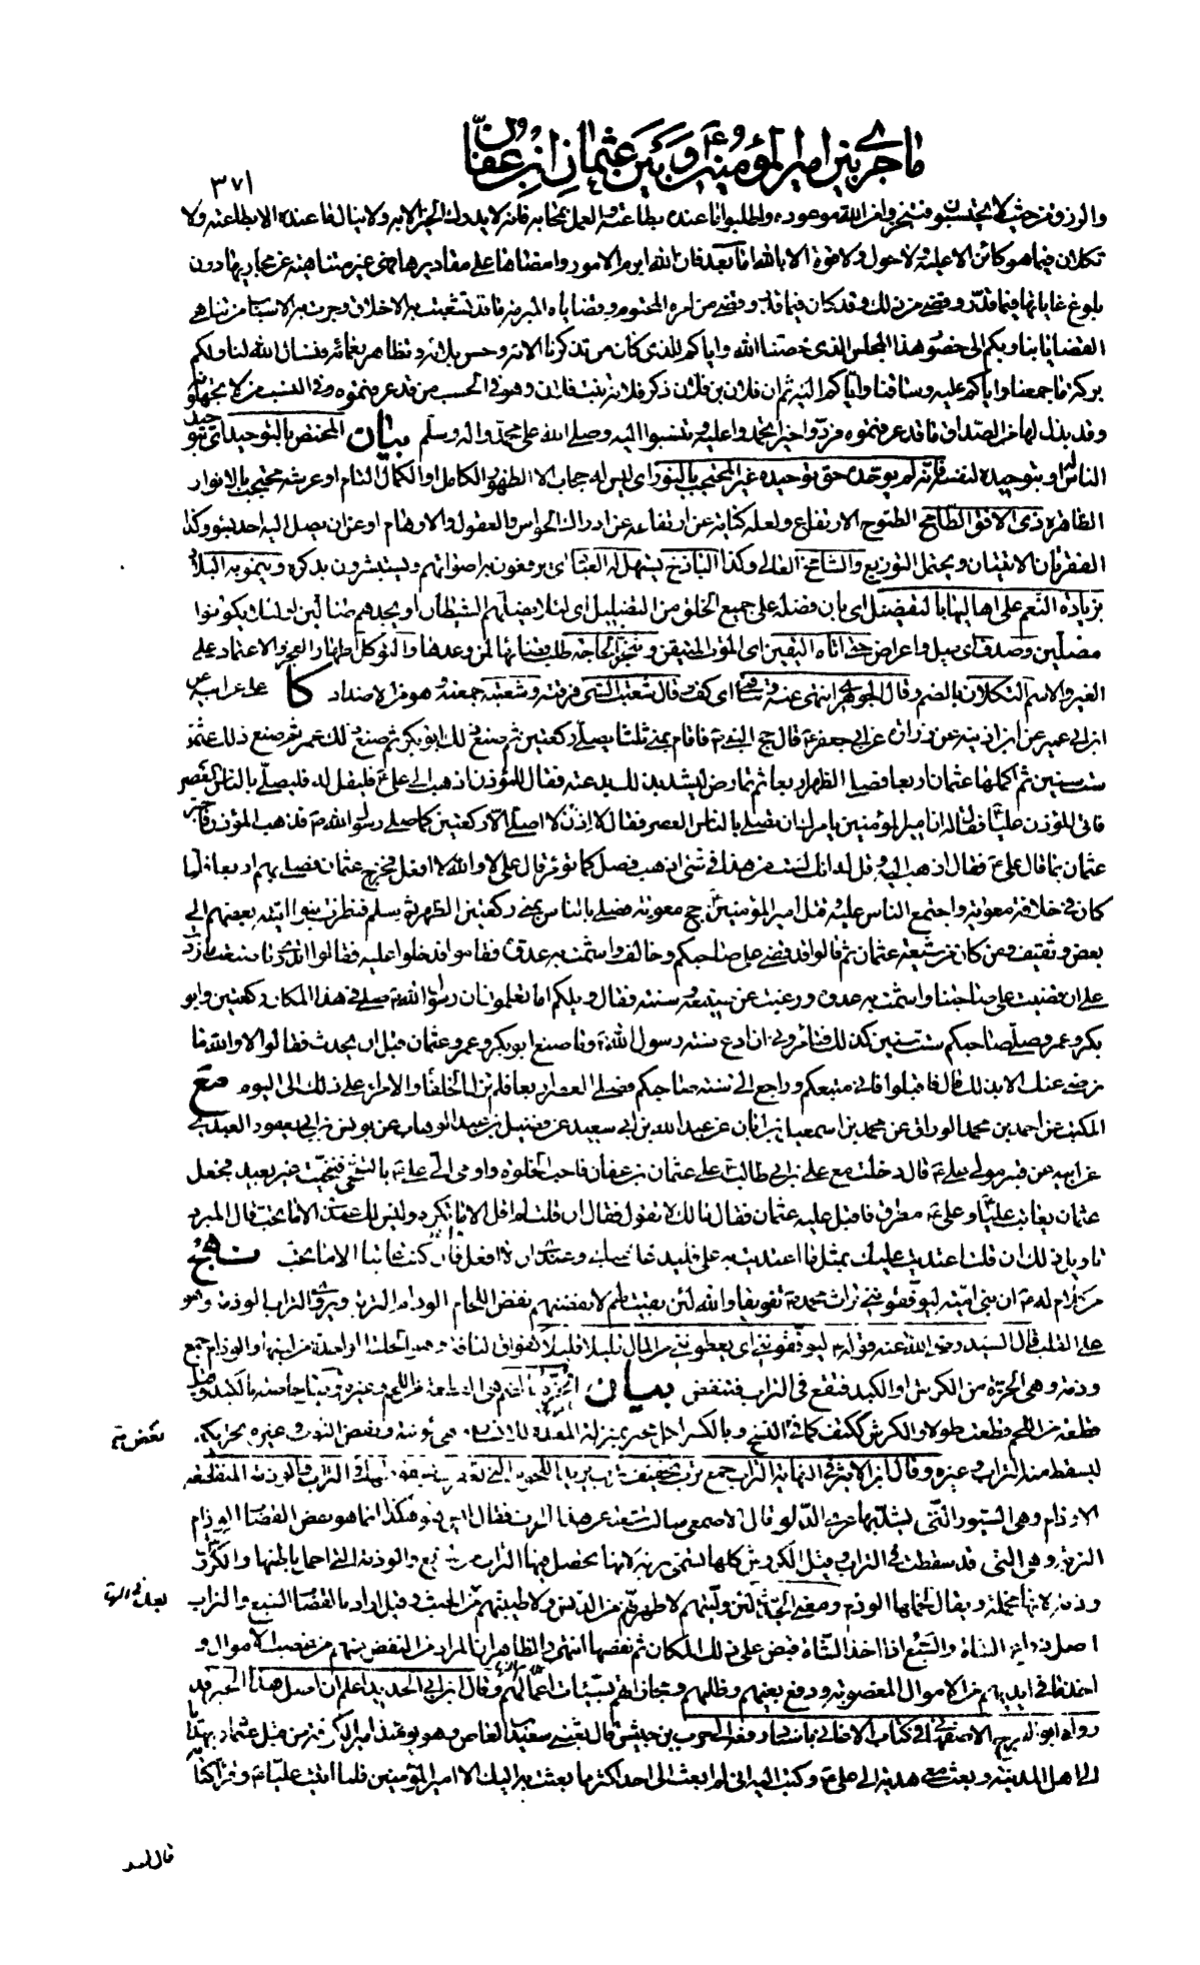 ما جرى بين امير المؤمنين ع وبين عثمان ابن عفان
٣٧١
والرزق من حيث لا يحتسبون فتنجزوا من الله موعوده واطلبوا ما عنده بطاعته والعمل بمحابه فانه لا يدرك الخير الا به ولا ينال ما عنده الا بطاعته ولا
تكلان فيما هو كائن الا عليه ولا حول ولا قوة الا بالله اما بعد فان الله ابرم الامور وامضاها على مقاديرها فهي غير متناهية عن مجاريها دون
بلوغ غاياتها فيما قدر وقضى من ذلك وقد كان فيما قدر وقضى من امره المحتوم وقضاياه المبرمة ما قد تشعبت به الاخلاق وجرت به الاسباب من تناهي
القضايا بنا وبكم الى حضور هذا المجلس الذي خصنا الله واياكم للذي كان من تذكرنا الائه وحسن بلائه وتظاهر نعمائه فنسال الله لنا ولكم
بركة ما جمعنا واياكم عليه وساقنا واياكم اليه ثم ان فلان بن فلان ذكر فلانة بنت فلان وهو في الحسب من قد عرفتموه وفي النسب من لا تجهلونه
وقد بذل لها من الصداق ما قد عرفتموه فردوا خيرا تحمدوا عليه وتنسبوا اليه وصلى الله على محمد واله وسلم بيان المختص بالتوحيد اي بتوحيد
الناس له او بتوحيده لنفسه فانه لم يوحده حق توحيده غيره المحتجب بالنور اي ليس له حجاب الا الظهور الكامل او الكمال التام او عرشه محتجب بالانوار
الظاهرة ذي الافق الطامح الطموح الارتفاع ولعله كناية عن ارتفاعه عن ادراك الحواس والعقول والاوهام او عن ان يصل اليه احد بسوء وكذا
الفقرتان الاتيتان ويحتمل التوزيع والشامخ العالي وكذا الباذخ يستهل له العباد اي يرفعون به اصواتهم ويستبشرون بذكره وينمو به البلاد
بزيادة النعم على اهاليها بالتفضيل اي بان فضله على جميع الخلق من التضليل اي لئلا يضلهم الشيطان او يجدهم ضالين او لئلا يكونوا
مضلين وصدف اي ميل واعراض حتى اتاه اليقين اي الموت المتيقن وتنجز الحاجة طلب قضائها لمن وعدها والتوكل اظهار العجز والاعتماد على
الغير والاسم التكلان بالضم وقال الجوهري انتهى عنه وتناهى اي كف وقال شعبت الشيء فرقته وشعبته جمعته وهو من الاضداد كا علي عن ابيه عن
ابن ابي عمير عن ابن اذينة عن زرارة عن ابي جعفر ع قال حج النبي ص فاقام بمنى ثلثا يصلي ركعتين ثم صنع ذلك ابو بكر ثم صنع ذلك عمر ثم صنع ذلك عثمن
ست سنين ثم اكملها عثمان اربعا فصلى الظهر اربعا ثم تمارض ليشد بذلك بدعته فقال للمؤذن اذهب الى علي ع فليقل له فليصل بالناس العصر
فاتى المؤذن عليا فقال له ان امير المؤمنين يامرك ان تصلي بالناس العصر فقال لا اذن لا اصلي الا ركعتين كما صلى رسول الله ص فذهب المؤذن فاخبر
عثمان بما قال علي ع فقال اذهب اليه وقل له انك لست من هذا في شيء اذهب فصل كما تؤمر قال علي لا والله لا افعل فخرج عثمان فصلى بهم اربعا فلما
كان في خلافة معوية واجتمع الناس عليه وقتل امير المؤمنين ع حج معوية فصلى بالناس بمنى ركعتين الظهر ثم سلم فنظرت بنو امية بعضهم الى
بعض وثقيف ومن كان من شيعة عثمان ثم قالوا قد قضى على صاحبكم وخالف واشمت به عدوه فقاموا فدخلوا عليه فقالوا اتدري ما صنعت ما زدت
على ان قضيت على صاحبنا واشمت به عدوه ورغبت عن صنيعه وسنته فقال ويلكم اما تعلمون ان رسول الله ص صلى في هذا المكان ركعتين وابو
بكر وعمر وصلى صاحبكم ست سنين كذلك فتامروني ان ادع سنة رسول الله ص وما صنع ابو بكر وعمر وعثمان قبل ان يحدث فقالوا لا والله ما
نرضى عنك الا بذلك قال فاقبلوا فاني متبعكم وراجع الى سنة صاحبكم فصلى العصر اربعا فلم تزل الخلفاء والامراء على ذلك الى اليوم مع
المكتب عن احمد بن محمد الوراق عن محمد بن اسمعيل بن ابان عن عبد الله بن ابي سعيد عن فضيل بن عبد الوهاب عن يونس بن ابي يعفور العبدي
عن ابيه عن قنبر مولى علي ع قال دخلت مع علي بن ابي طالب على عثمان بن عفان فاحب الخلوة واومى الى علي ع بالتنحي فتنحيت غير بعيد فجعل
عثمان يعاتب عليا وعلي ع مطرق فاقبل عليه عثمان فقال ما لك لا تقول فقال ان قلت لم اقل الا ما تكره وليس لك عندي الا ما تحب قال المبرد
تاويل ذلك ان قلت اعتديت عليك بمثل ما اعتددت به علي فليدغك عتابي وعقدي ان لا افعل وان كنت عاتبا الا ما تحب نهج
من كلام له ع ان بني امية ليفوقونني تراث محمد ص تفويقا والله لئن بقيت لهم لانفضنهم نفض اللحام الوذام التربة ويروى التراب الوذمة وهو
على القلب قال السيد رضي الله عنه قوله ع ليفوقونني اي يعطونني من المال قليلا قليلا كفواق الناقة وهو الحلبة الواحدة من لبنها والوذام جمع
وذمة وهي الحزة من الكرش او الكبد فتقع في التراب فتنفض بيان
قطعة من اللحم قطعت طولا والكرش ككتف كما في النسخ وبالكسر لكل مجتر بمنزلة المعدة للانسان وهي مؤنثة ونفض الثوب وغيره تحريكه
ليسقط منه التراب وغيره وقال ابن الاثير في النهاية التراب جمع ترب تخفيف ترب يريد اللحوم التي تعفرت بسقوطها في التراب والوذمة المنقطعة
الاوذام وهي السيور التي يشد بها عرى الدلو قال الاصمعي سالت شعبة عن هذا الحرف فقال ليس هو هكذا انما هو نفض القصاب الوذام
التربة وهي التي قد سقطت في التراب وقيل الكروش كلها تسمى تربة لانها يحصل فيها التراب من المرتع والوذمة التي اخمل باطنها والكروش
وذمة لانها مخملة ويقال لخملها الوذم ومعنى الحديث لئن وليتهم لاطهرنهم من الدنس ولاطيبنهم من الخبث وقيل اراد بالقصاب السبع والتراب
اصل ذراع الشاة والسبع اذا اخذ الشاة قبض على ذلك المكان ثم نفضها انتهى والظاهر ان المراد من النفض منعهم من غصب الاموال و
اخذ ما في ايديهم من الاموال المغصوبة ودفع بغيهم وظلمهم ومجازاتهم بسيئات اعمالهم وقال ابن ابي الحديد اعلم ان اصل هذا الخبر قد
رواه ابو الفرج الاصفهاني في كتاب الاغاني باسناد رفعه الى حرب بن حبيش قال بعثني سعيد بن العاص وهو يومئذ امير الكوفة من قبل عثمان بهدايا
الى اهل المدينة وبعث معي هدية الى علي ع وكتب اليه اني لم ابعث الى احد اكثر مما بعثت به اليك الا امير المؤمنين فلما اتيت عليا ع وقرا كتابه